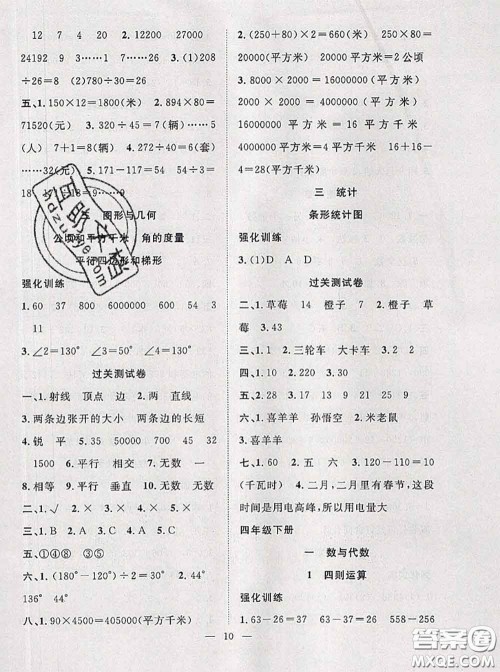 12 7 6 2. 15200 27000
24192 9……1 7……6 3. (1)208
÷26=8 (2)780÷30=26
五、1. 150×12=1800(米) 2. 894×80=
71520(元) 3. 320÷45=7(辆)……5
(人) 7+1=8(辆) 4. 272÷40=6(套)
……32(元) 5. 171-117=54 54÷
÷18=9……0
图形与几何
公顷和平方千米,角的度量
平行四边形和梯形
强化训练
1. 60 37 800 6000000 600 54 3
11
3. ∠2=130° ∠3=50° ∠4=130°
过关测试卷
一、1. 射线 顶点 边 两 直线
3. 两条边张开的大小 两条边的长短
4. 锐 平 5. 30 75 9 16 47 32
1500 6. 平行 相交 7. 无数 一
8. 相等 平行 垂直 9. 无数 10. 60
二、1. √ 三、1. B 2. C 3. A
五、①④⑧ ③⑤
六、1. (1)42° (2)120° 2. 44°
136° 44°
八、1. 90×4500=405000(平方千米)
2. (250+80)×2=660(米) 250×80=
20000(平方米) 20000平方米=2公顷
3. 8000×2000=16000000(平方米)
16000000 平方米=16 平方千米
4. 4000×4000=16000000(平方米)
16000000 平方米=16 平方千米 16+16-
4=28(平方千米)
三 统计
条形统计图
强化训练
3. (1)D A D
过关测试卷
二、1. 草莓 14 橙子 7 2. 橙子 草
莓 3. 43
三、1. 12 2. 三轮车 大卡车 3. 2
4. 39
六、1. 喜羊羊 孙悟空 2. 米老鼠
3. 喜羊羊
七、1. 20 2. 五 六 3. 120-110=10
(千瓦时) 4. 二,二月里有春节,这一
段时间是用电高峰,所以用电量大
四年级下册
一 数与代数
1 四则运算
强化训练
1. 63-26=37 63-37=26 558-256
10
答案圈
MXQE.COM